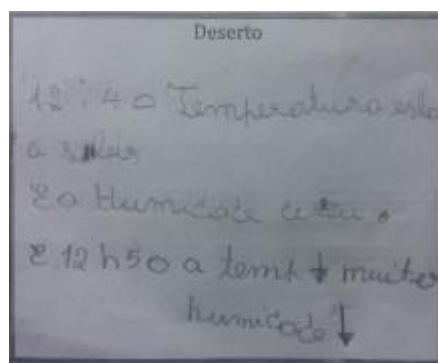 Deserto
12:40 Temperatura esta
a
E a Humicade
E 12h50 a temp ↓ muito
humicade ↓